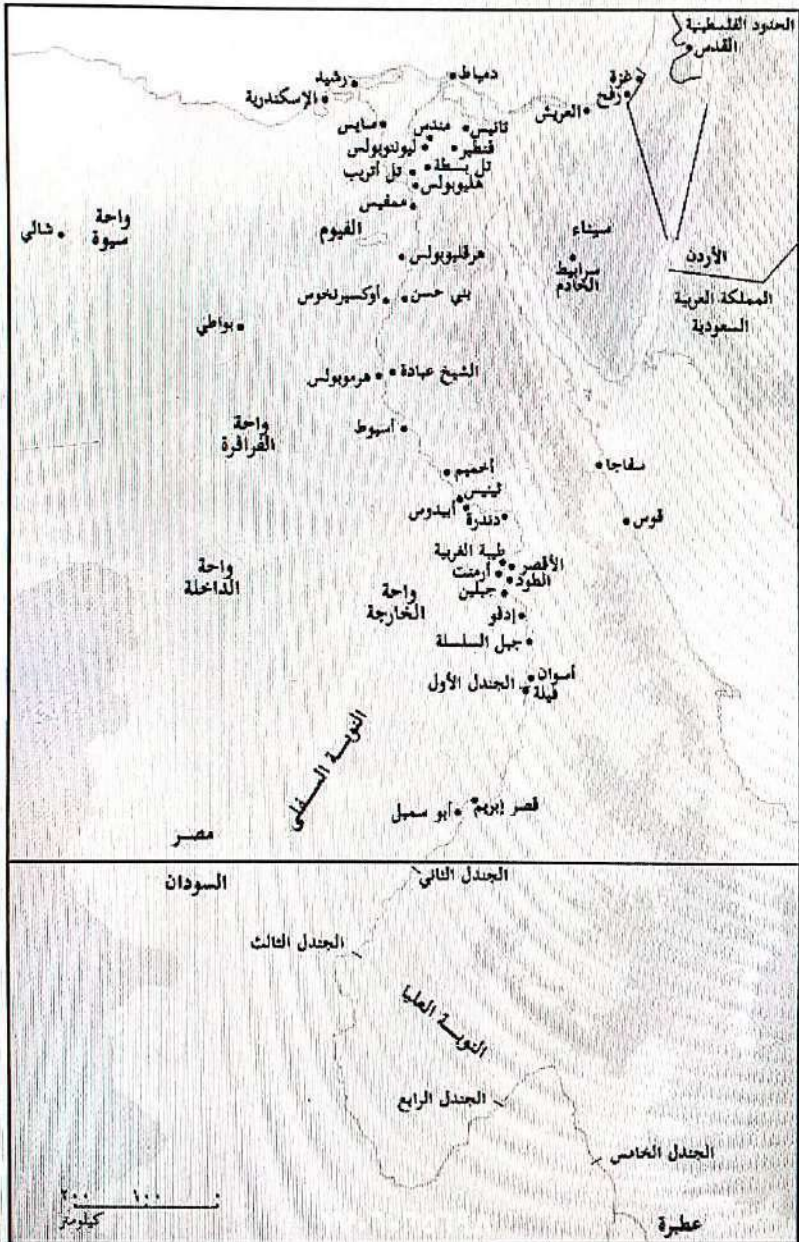 الحدود الفلسطينية
القدس
غزة
رفح
العريش
دمياط
رشيد
الإسكندرية
تانيس
مندس
سايس
قنطير
ليونتوبولس
تل بسطة
تل أتريب
هليوبولس
ممفيس
الفيوم
واحة
سيوة
شالي
سيناء
سرابيط
الخادم
الأردن
المملكة العربية
السعودية
هرقليوبولس
بني حسن
أوكسيرنخوس
بواطي
الشيخ عبادة
هرموبولس
واحة
الفرافرة
أسيوط
أخميم
سفاجا
ثينيس
أبيدوس
دندرة
قوس
طيبة الغربية
الأقصر
أرمنت
الطود
جبلين
واحة
الداخلة
واحة
الخارجة
إدفو
جبل السلسلة
أسوان
الجندل الأول
فيلة
النوبة السفلى
قصر إبريم
أبو سمبل
مصر
السودان
الجندل الثاني
الجندل الثالث
النوبة العليا
الجندل الرابع
الجندل الخامس
عطبرة
٢٠٠ ١٠٠ ٠
كيلومتر